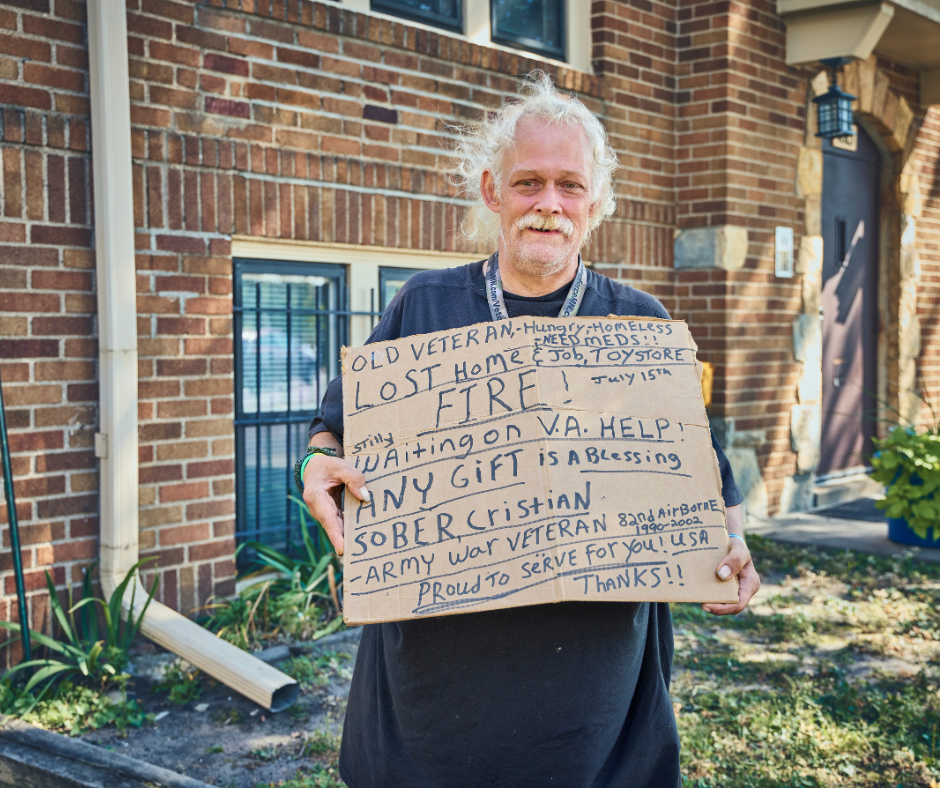 OLD VETERAN,-HUNGRY-HOMELESS
-NEED MEDS!!
LOST HOME & JOB, TOYSTORE
FIRE! JULY 15TH
STILLY
WAITING ON V.A. HELP!
ANY GIFT is A BLESSING
SOBER, CRISTIAN
-ARMY WAR VETERAN 82nd AirBORNE
1990-2002
PROUD TO SERVE FOR YOU! USA
THANKS!!